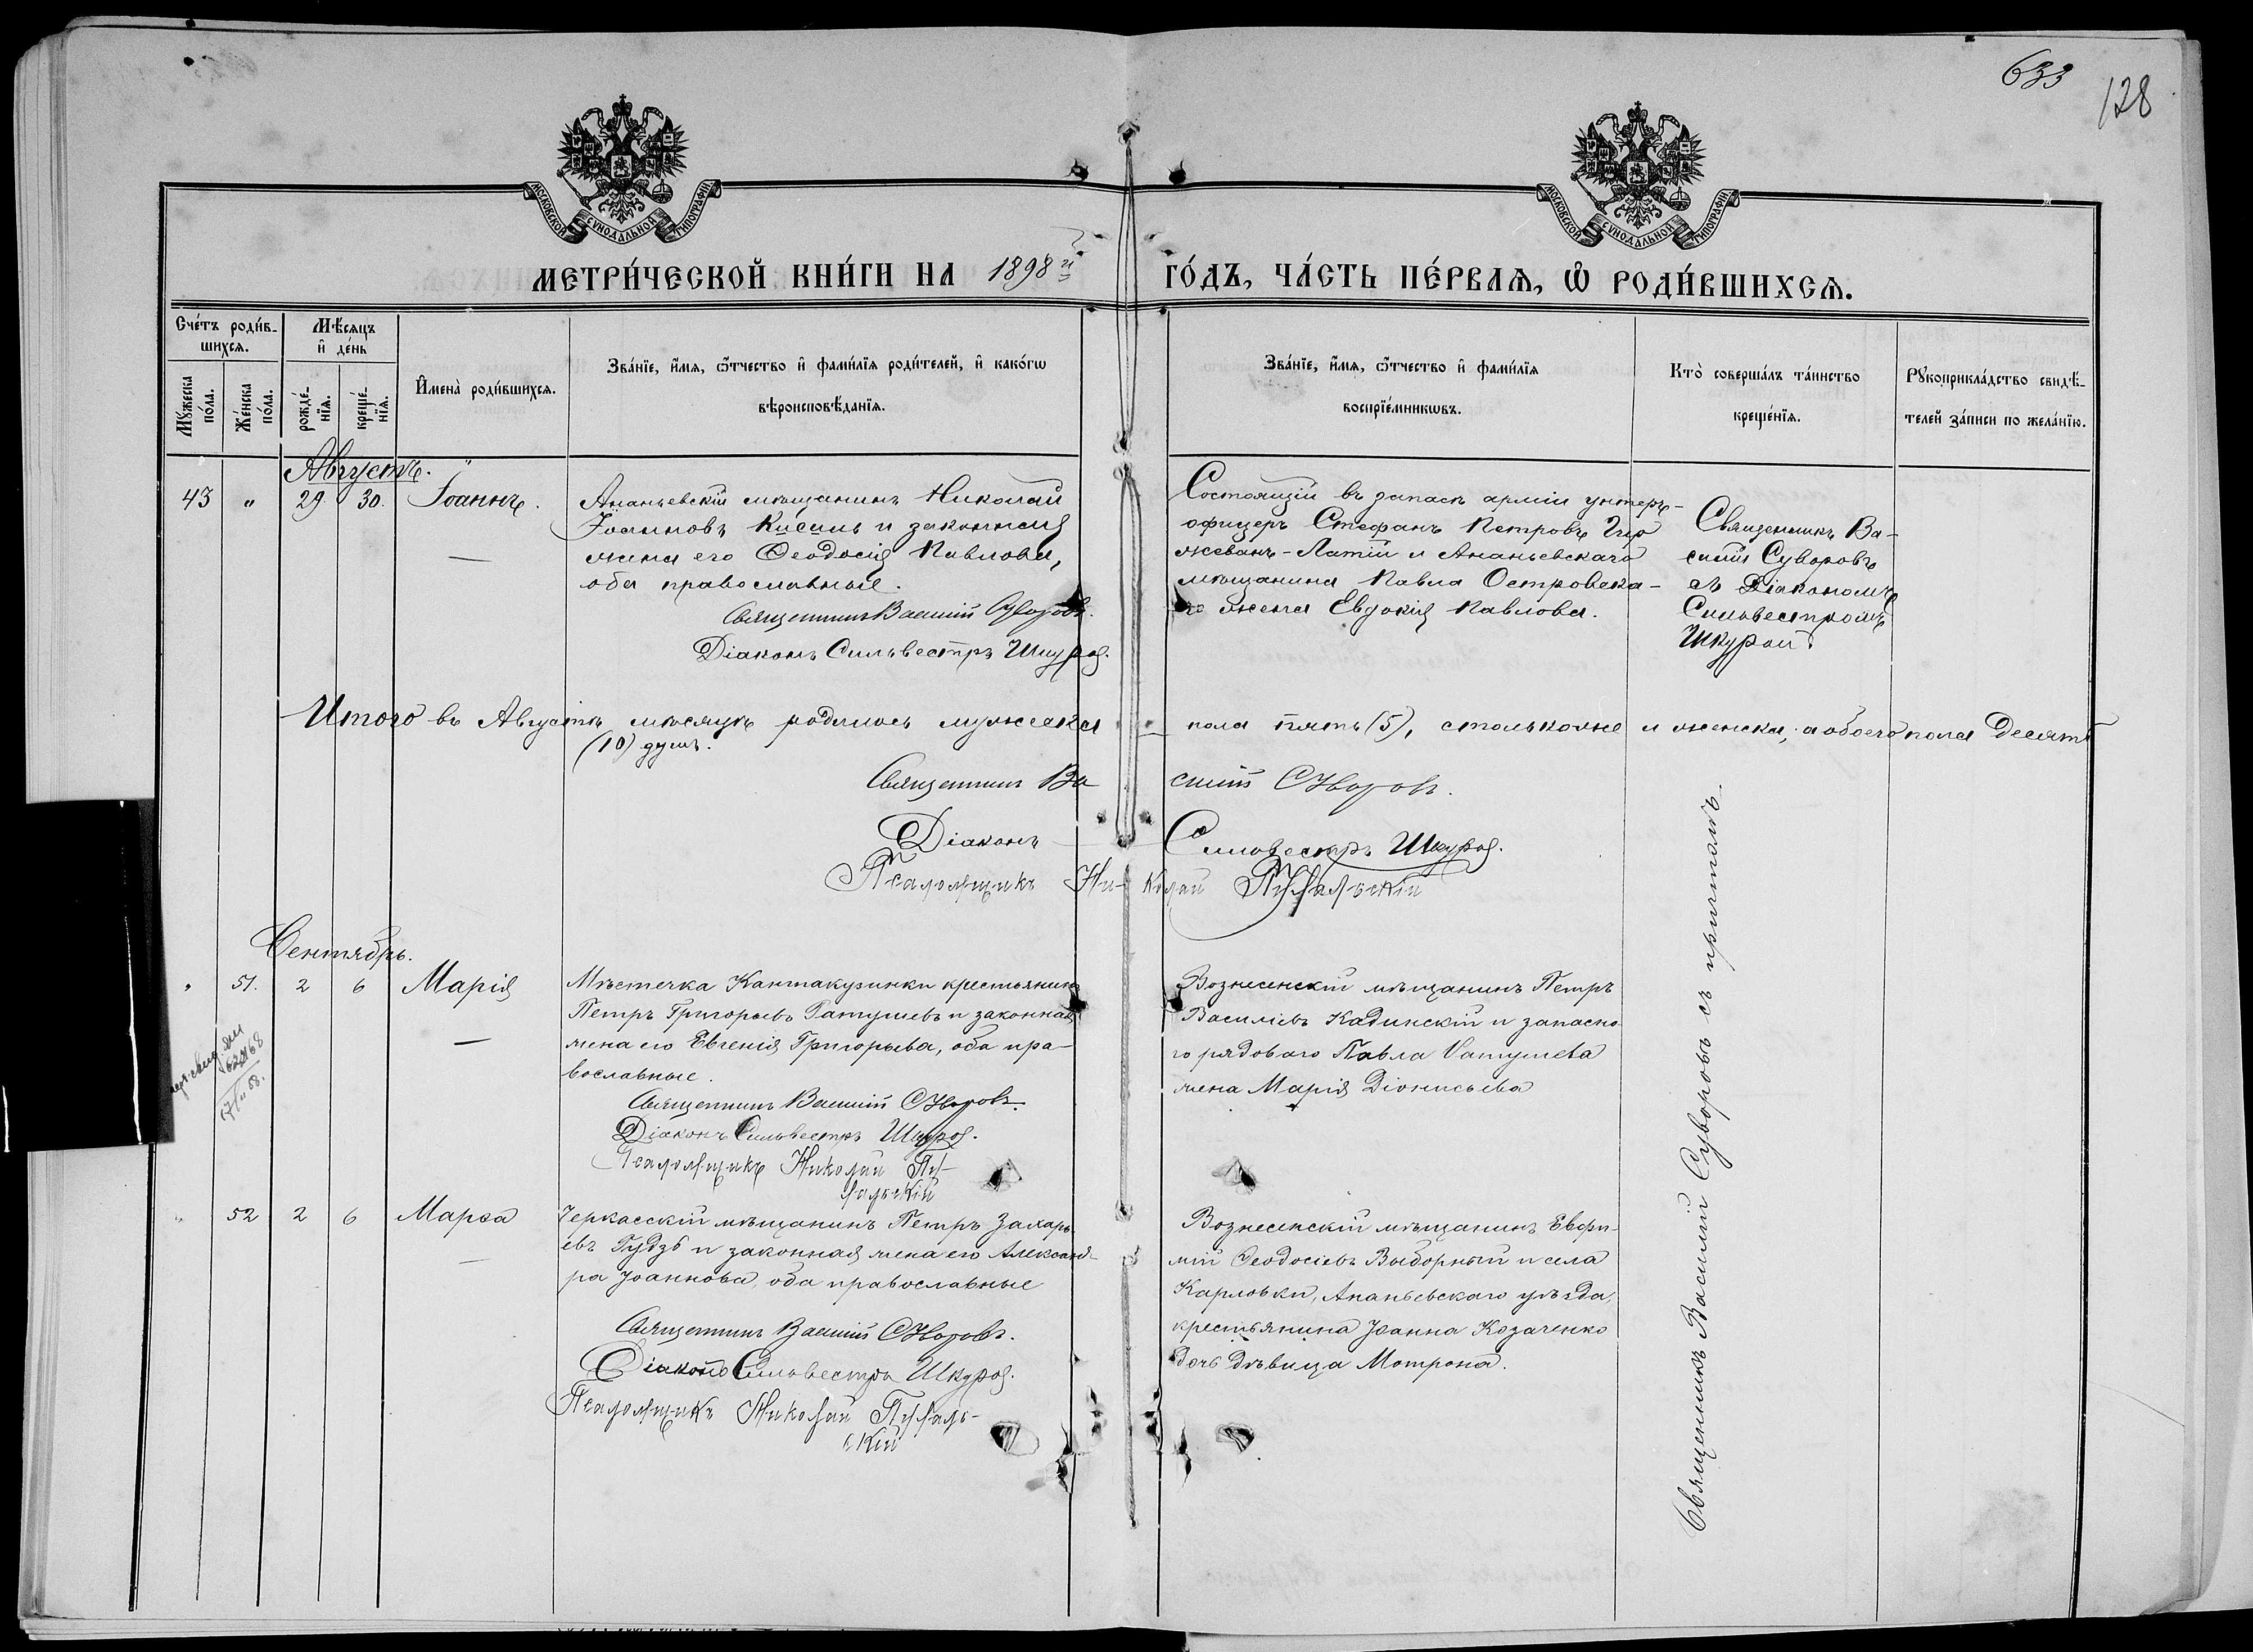 633
128
МОСКОВСКОЙ СУНОДАЛЬНОЙ ТИПОГРАФІИ
МОСКОВСКОЙ СУНОДАЛЬНОЙ ТИПОГРАФІИ
МЕТРИ́ЧЕСКОЙ КНИ́ГИ НА 1898й ГО́ДЪ, ЧА́СТЬ ПЕ́РВАѦ, Ѽ РОДИ́ВШИХСѦ.
Сче́тъ роди́в-
шихсѧ.
Мѣ́сѧцъ
и҆ де́нь
Мꙋ́жеска
по́ла.
Же́нска
по́ла.
рожде́-
нїѧ.
креще́-
нїѧ.
И҆мена̀ роди́вшихсѧ.
Зва́нїе, и҆́мѧ, ѻ҆́тчество и҆ фами́лїѧ роди́телей, и҆ како́гѡ
вѣроисповѣ́данїѧ.
Зва́нїе, и҆́мѧ, ѻ҆́тчество и҆ фами́лїѧ
воспрїе́мникѡвъ.
Кто̀ соверша́лъ та́инство
креще́нїѧ.
Рꙋкоприкла́дство свидѣ́-
телей за́писи по жела́нїю.
Августъ.
43 " 29. 30. Іоаннъ.
Ананьевскій мѣщанинъ Николай
Іоанновъ Кисиль и законная
жена его Ѳеодосія Павлова,
оба православные.
Священникъ Василій Суворовъ.
Діаконъ Сильвестръ Шкура.
Состоящій въ запасѣ арміи унтеръ-
офицеръ Стефанъ Петровъ
жеванъ-Латій и Ананьевскаго
мѣщанина Павла Островска-
го жена Евдокія Павлова.
Священникъ Ва-
силій Суворовъ
съ Діакономъ
Сильвестромъ
Шкурой.
Итого въ Августѣ мѣсяцѣ родилось мужеска пола пять (5), столько же и женска, а обоего пола десять
(10) душъ.
Священникъ Василій Суворовъ.
Діаконъ Сильвестръ Шкура.
Псаломщикъ Николай
Сентябрь.
" 51. 2 6 Марія
Мѣстечка Кантакузинки крестьянинъ
Петръ Григорьевъ Ватушевъ и законная
жена его Евгенія Григорьева, оба пра-
вославные.
Священникъ Василій Суворовъ.
Діаконъ Сильвестръ Шкура.
Псаломщикъ Николай
Вознесенскій мѣщанинъ Петръ
Василіевъ Кадинскій и запасно-
го рядоваго Павла Ватушева
жена Марія Діонисьева
" 52 2 6 Марѳа
Черкасскій мѣщанинъ Петръ Захарь-
евъ Гудзь и законная жена его Александ-
ра Іоаннова, оба православные
Священникъ Василій Суворовъ.
Діаконъ Сильвестръ Шкура.
Псаломщикъ Николай
Вознесенскій мѣщанинъ Евфи-
мій Ѳеодосіевъ Выборный и села
Карловки, Ананьевскаго уѣзда,
крестьянина Іоанна Козаченко
дочь дѣвица Мотрона.
Священникъ Василій Суворовъ съ причтомъ.